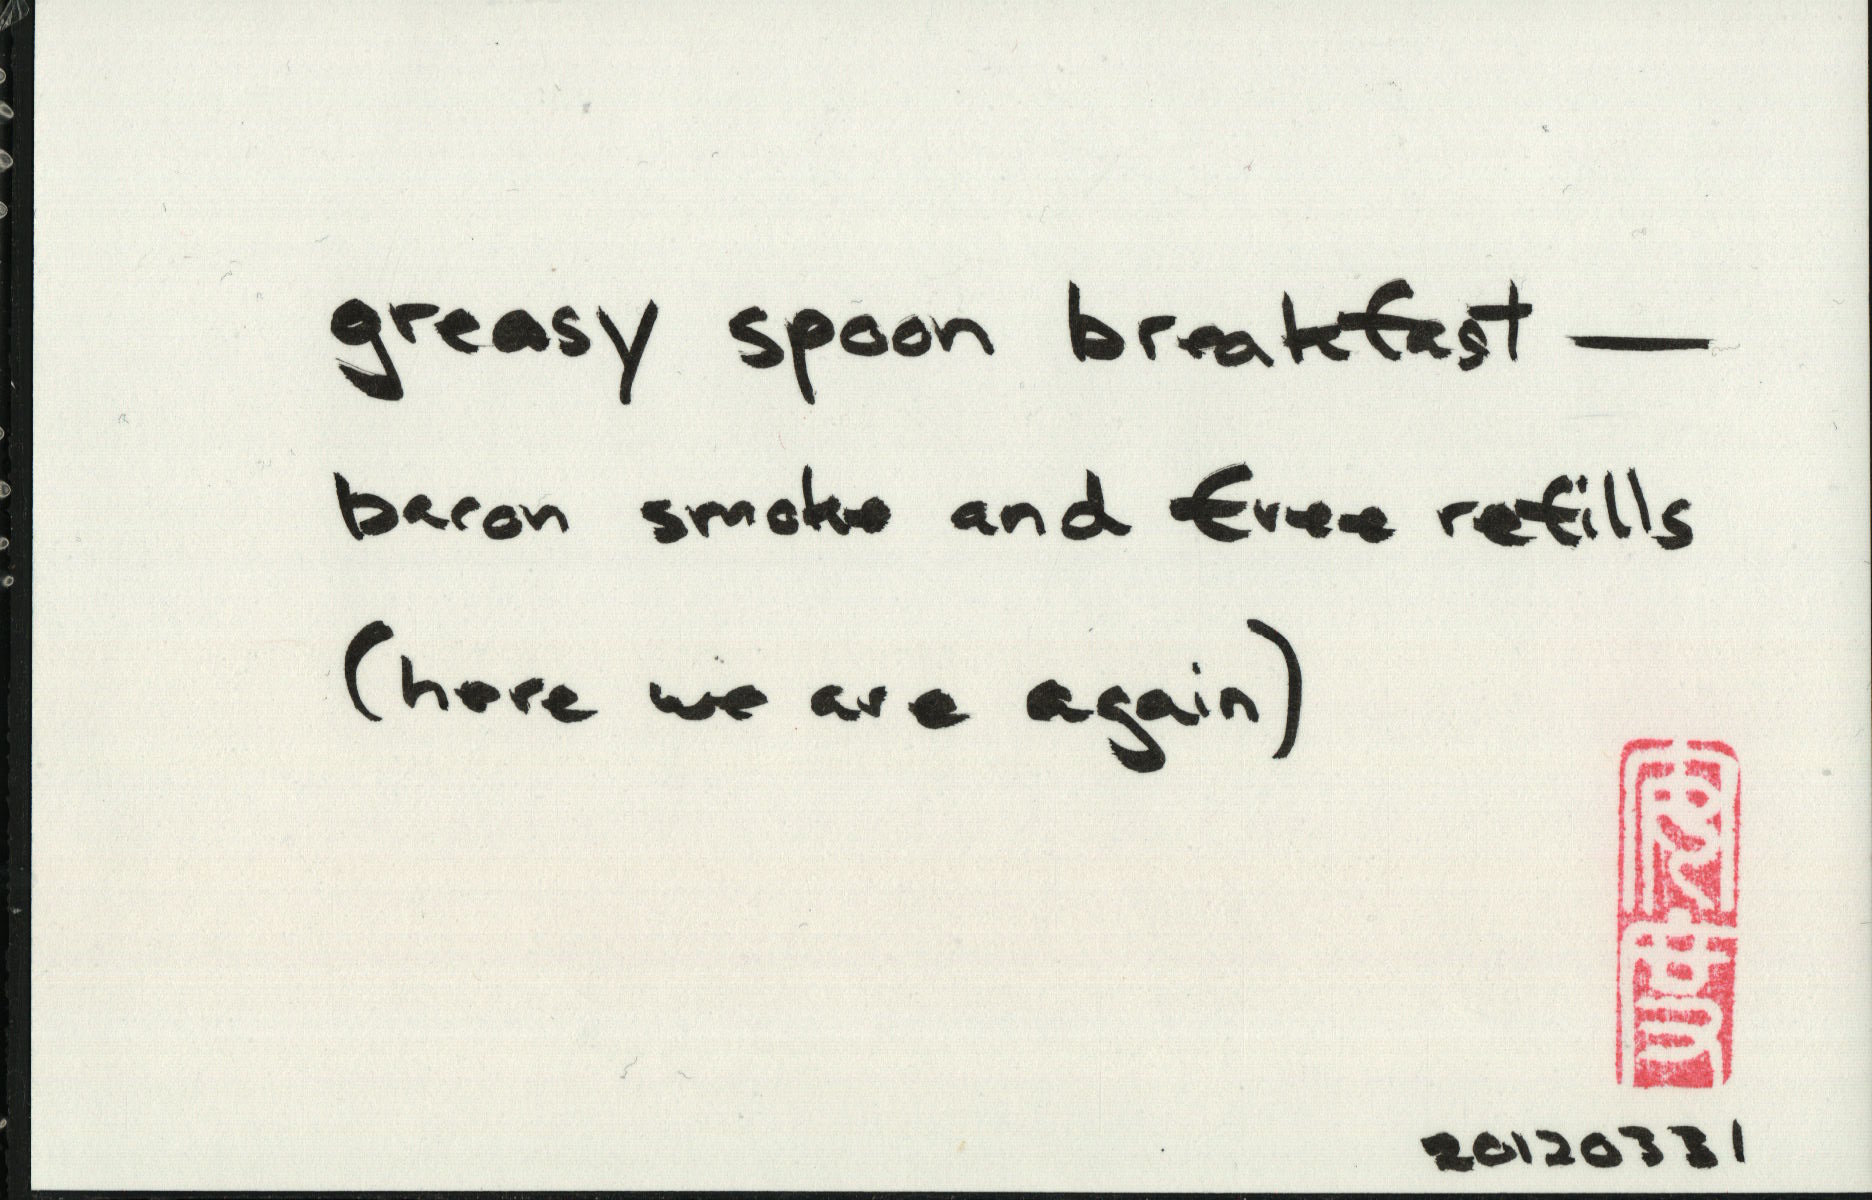 greasy spoon breakfast —
bacon smoke and free refills
(here we are again)
20120331